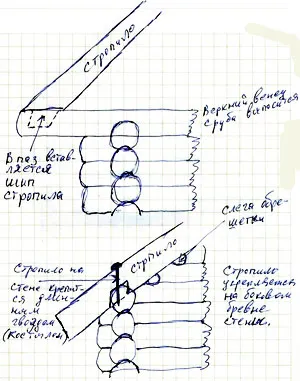 стропило
Верхний венец
сруба выносится
В паз встав-
ляется
шип
стропила
Слега обре-
шетки
стропило
Стропило на
стене крепит-
ся длин-
ным
гвоздем
(Костылем)
Стропило
укрепляется
на боковом
бревне
стены.